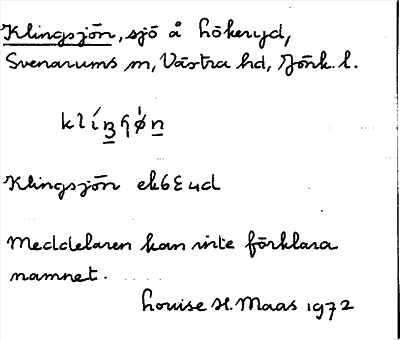 Klingsjön, sjö å Hökeryd,
Svenarums sn, Västra hd, Jönk. l.
Klingsjön
Meddelaren kan inte förklara
namnet.
Louise H. Maas 1972